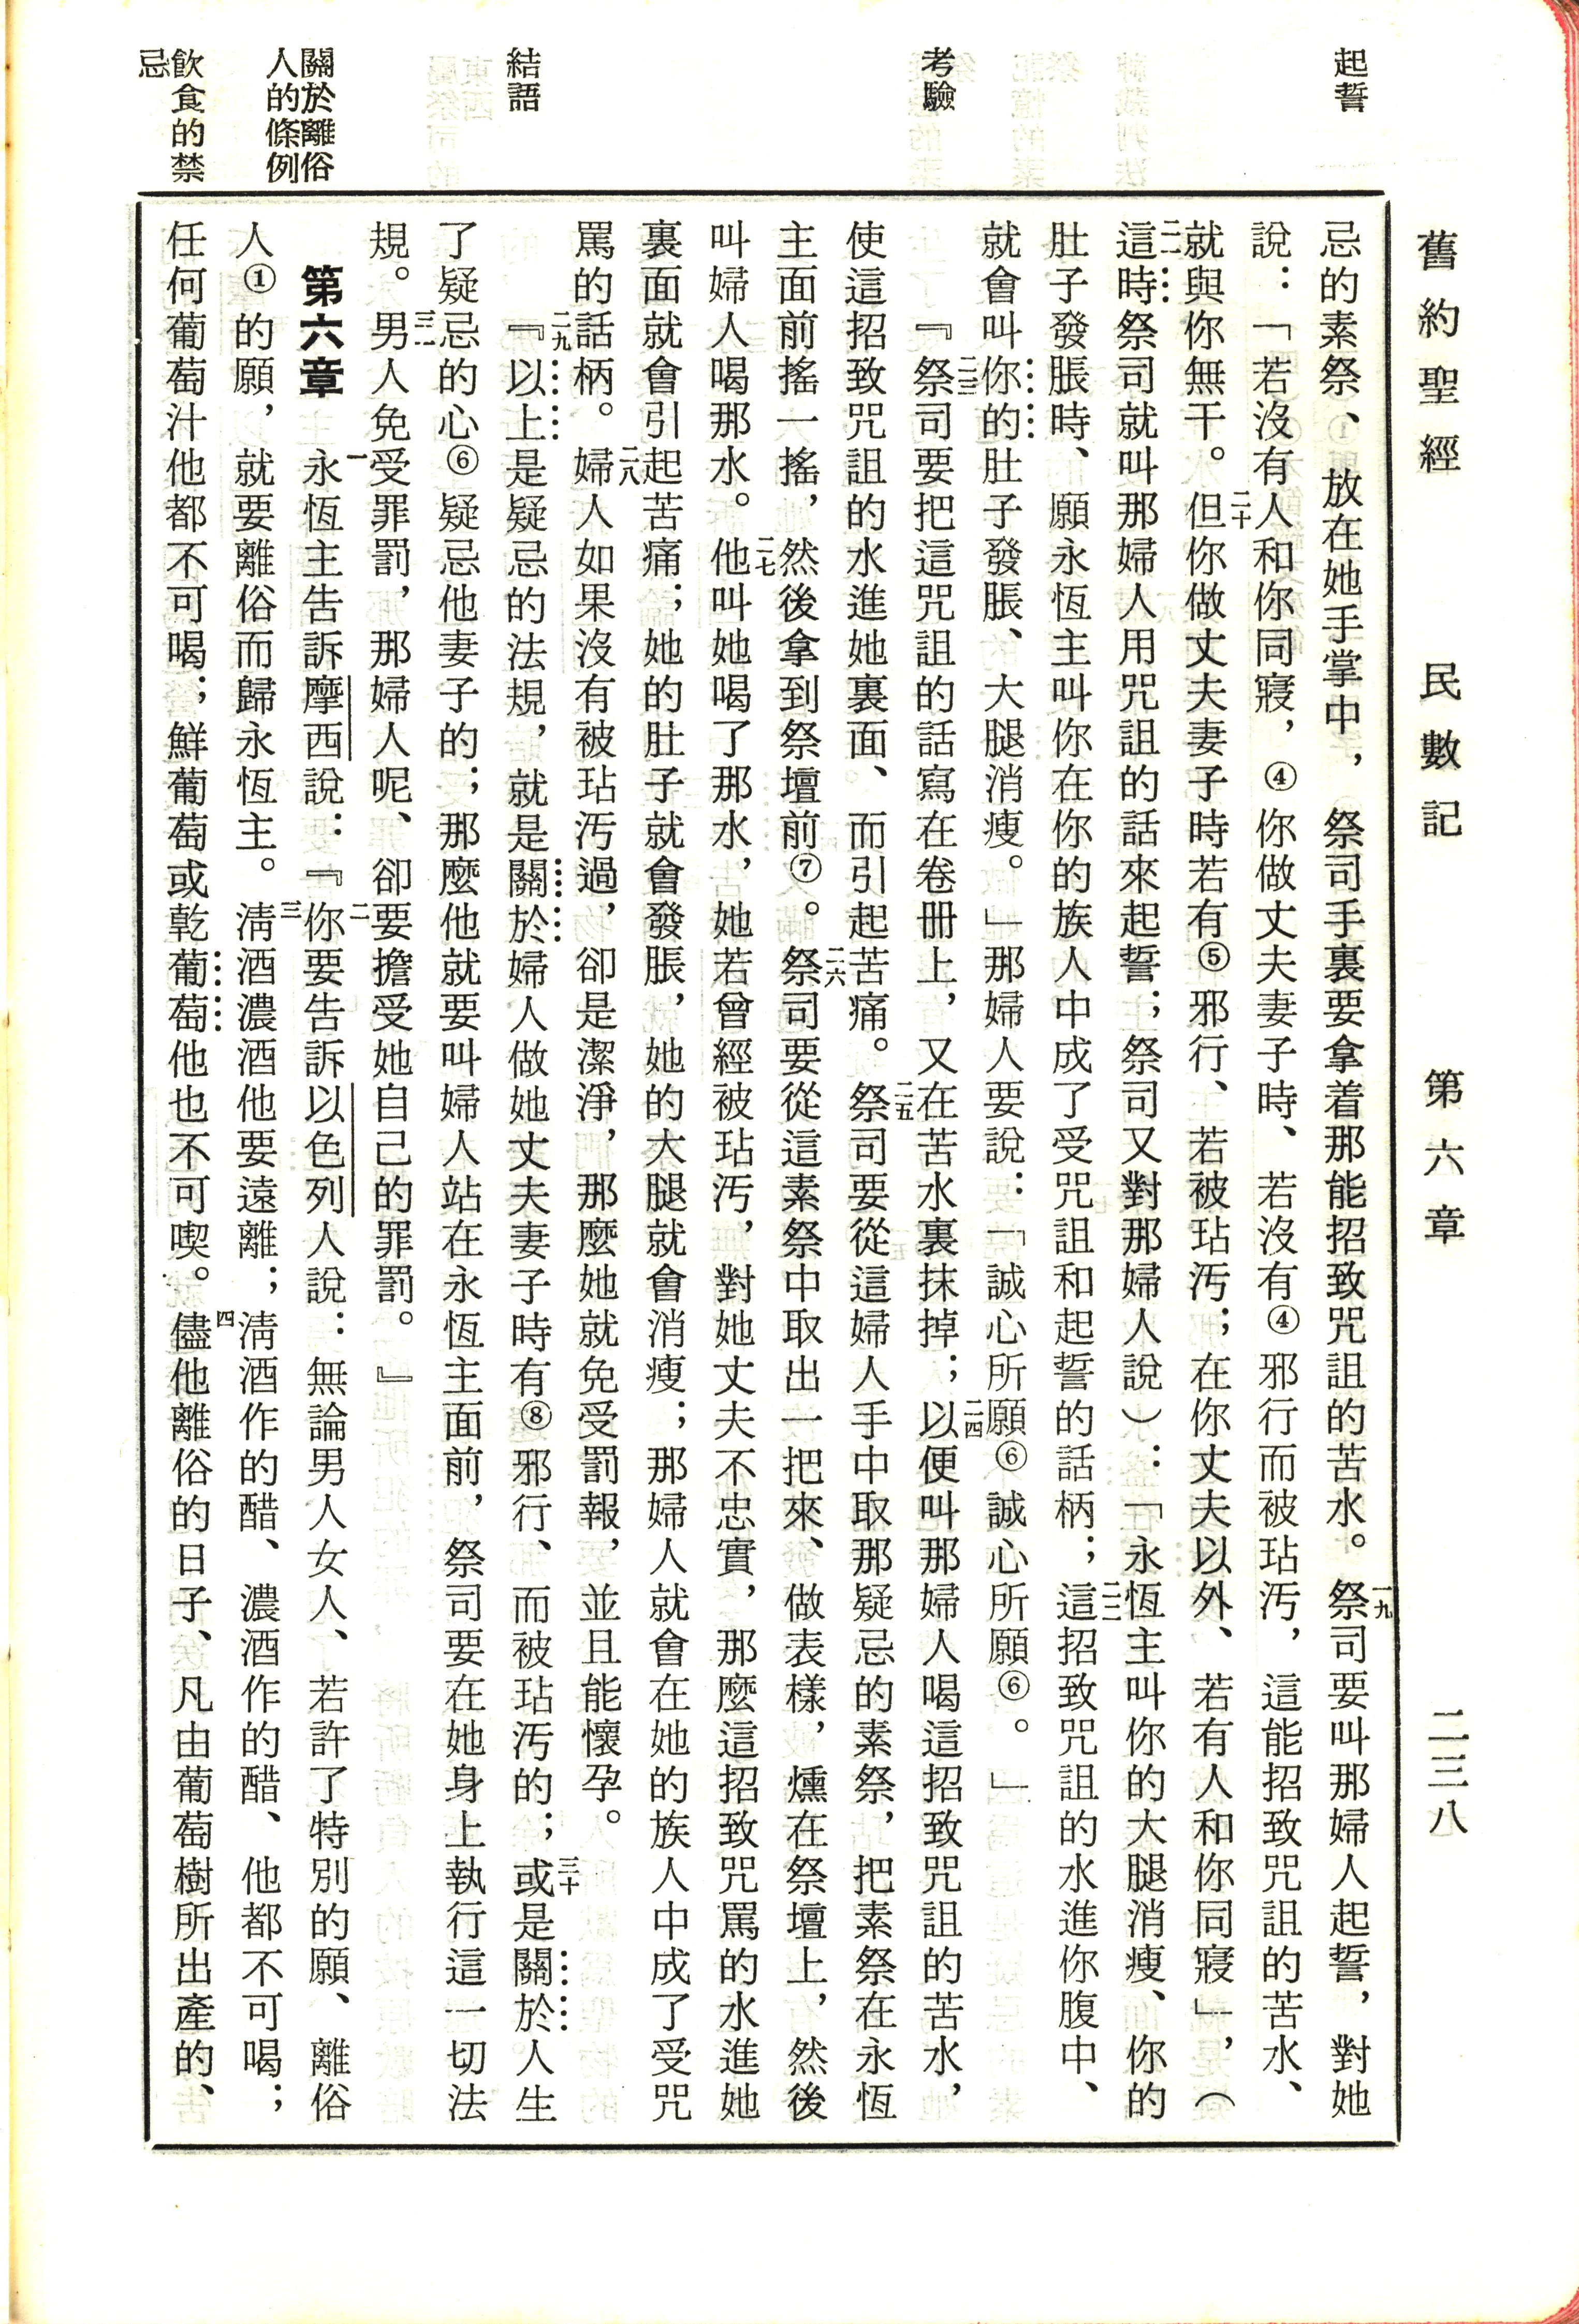 舊約聖經 民數記 第六章 二三八
起誓
忌的素祭、放在她手掌中，祭司手裏要拿着那能招致咒詛的苦水。一九祭司要叫那婦人起誓，對她
說：「若沒有人和你同寢，④你做丈夫妻子時、若沒有④邪行而被玷汚，這能招致咒詛的苦水、
就與你無干。二十但你做丈夫妻子時若有⑤邪行、若被玷汚；在你丈夫以外、若有人和你同寢」，（
二一這時祭司就叫那婦人用咒詛的話來起誓；祭司又對那婦人說）：「永恆主叫你的大腿消瘦、你的
肚子發脹時、願永恆主叫你在你的族人中成了受咒詛和起誓的話柄；二二這招致咒詛的水進你腹中、
就會叫你的肚子發脹、大腿消瘦。」那婦人要說：「誠心所願⑥誠心所願⑥。」
考驗
『二三祭司要把這咒詛的話寫在卷冊上，又在苦水裏抹掉；二四以便叫那婦人喝這招致咒詛的苦水，
使這招致咒詛的水進她裏面、而引起苦痛。二五祭司要從這婦人手中取那疑忌的素祭，把素祭在永恆
主面前搖一搖，然後拿到祭壇前⑦。二六祭司要從這素祭中取出一把來、做表樣，燻在祭壇上，然後
叫婦人喝那水。二七他叫她喝了那水，她若曾經被玷汚，對她丈夫不忠實，那麼這招致咒罵的水進她
裏面就會引起苦痛；她的肚子就會發脹，她的大腿就會消瘦；那婦人就會在她的族人中成了受咒
罵的話柄。二八婦人如果沒有被玷汚過，卻是潔淨，那麼她就免受罰報，並且能懷孕。
結語
『二九以上是疑忌的法規，就是關於婦人做她丈夫妻子時有⑧邪行、而被玷汚的；三十或是關於人生
了疑忌的心⑥疑忌他妻子的；那麼他就要叫婦人站在永恆主面前，祭司要在她身上執行這一切法
規。三一男人免受罪罰，那婦人呢、卻要擔受她自己的罪罰。』
關於離俗
人的條例
第六章 一永恆主告訴摩西說：『二你要告訴以色列人說：無論男人女人、若許了特別的願、離俗
人①的願，就要離俗而歸永恆主。三淸酒濃酒他要遠離；淸酒作的醋、濃酒作的醋、他都不可喝；
飲食的禁
忌
任何葡萄汁他都不可喝；鮮葡萄或乾葡萄他也不可喫。四儘他離俗的日子、凡由葡萄樹所出產的、